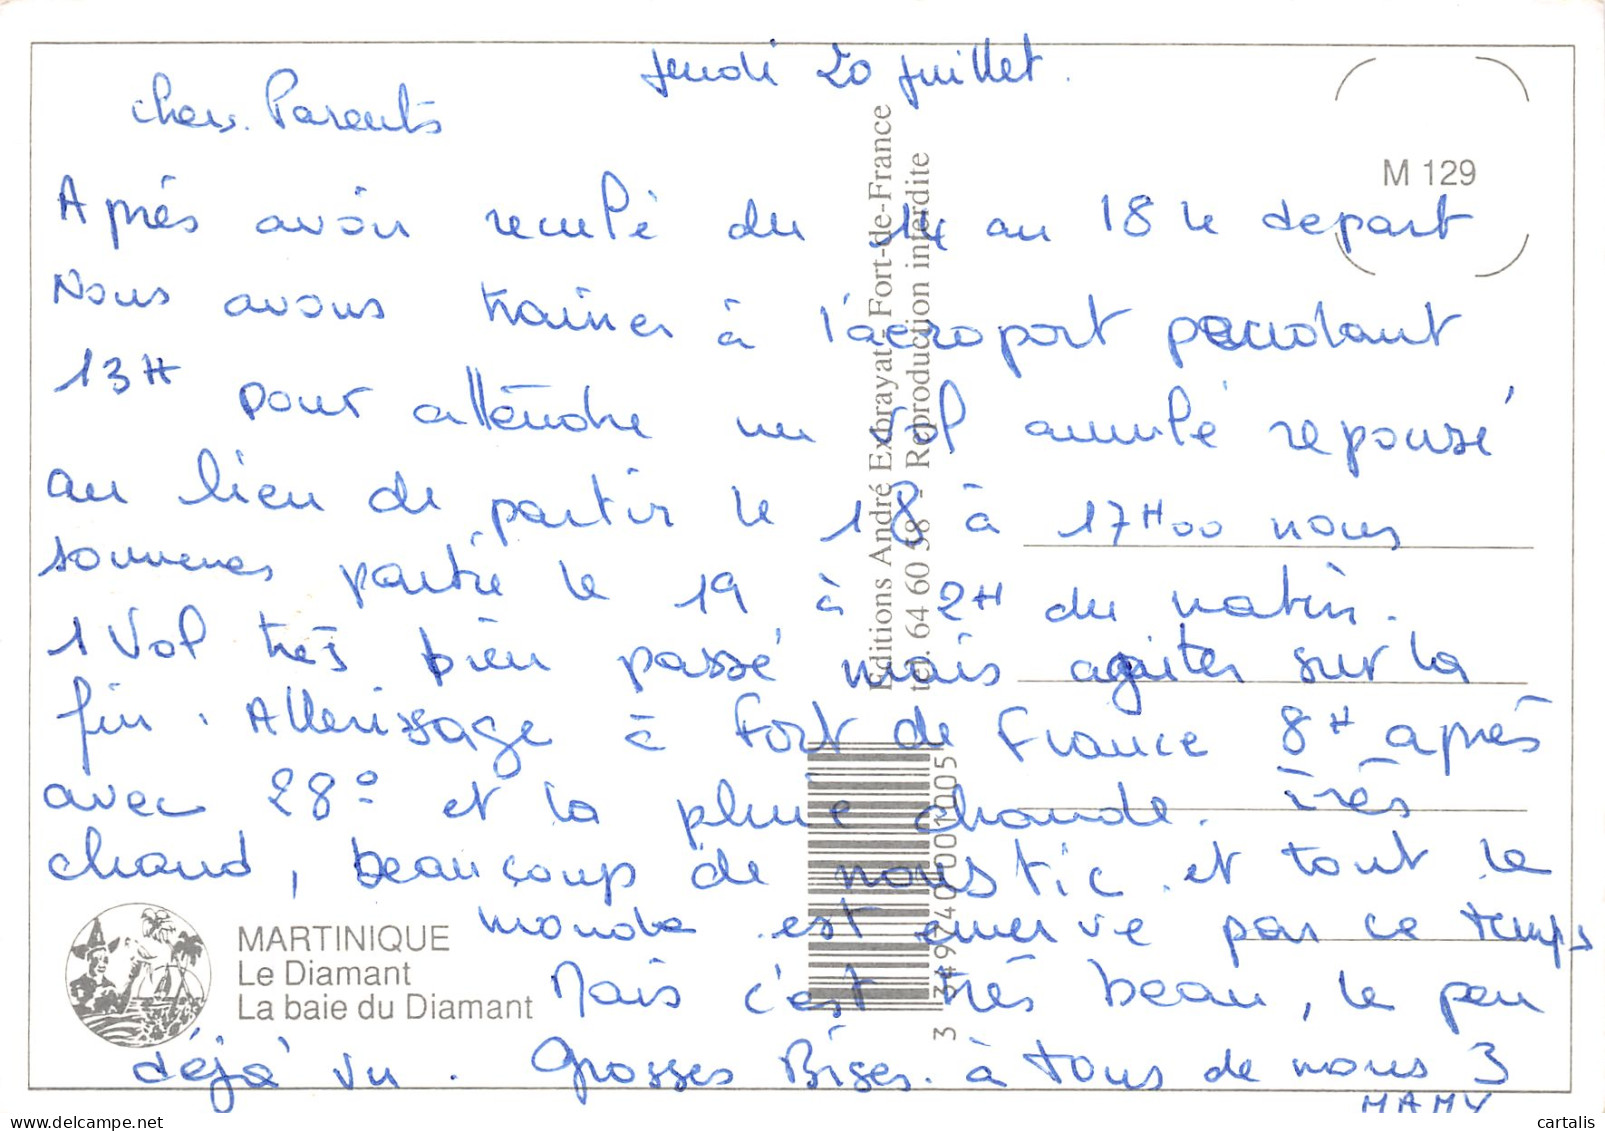 jeudi 20 juillet.
chers. Parents
M 129
Après avoir reculé du 14 au 18 le depart
Nous avons trainer à l'aéroport pendant
13H pour attendre un vol annulé repoussé
au lieu de partir le 18 à 17H00 nous
sommes partie le 19 à 2H du matin.
1 Vol très bien passé mais agiter sur la
fin. Atterissage à Fort de France 8H après
avec 28° et la pluie chaude. très
chaud, beaucoup de moustic et tout le
monde est enervé par ce temps
Mais c'est très beau, le peu
déjà vu. Grosses Bises. à tous de nous 3
MAMY
MARTINIQUE
Le Diamant
La baie du Diamant
Editions André Exbrayat - Fort-de-France
tél. 64 60 58 - Reproduction interdite
cartalis